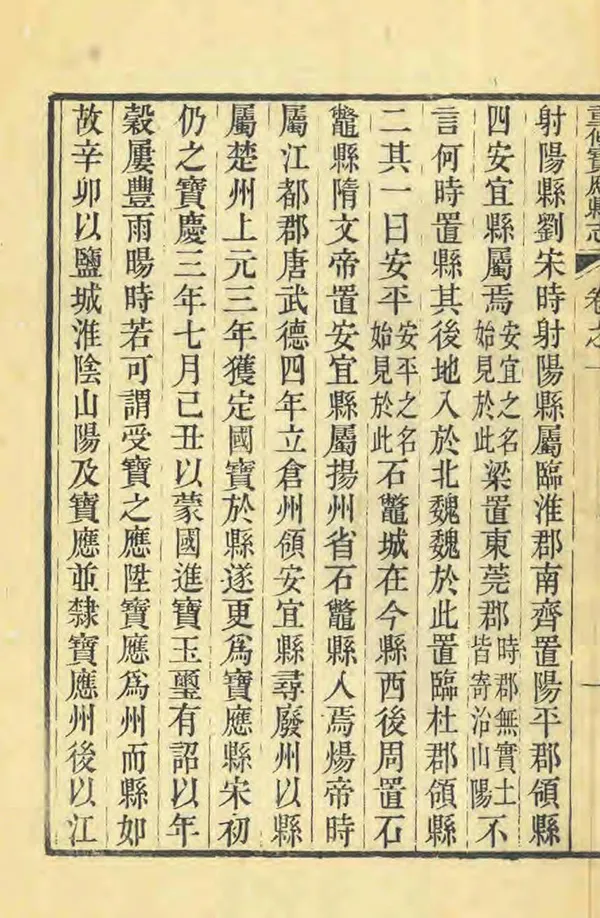 重修寶應縣志 卷之一
射陽縣劉宋時射陽縣屬臨淮郡南齊置陽平郡領縣
四安宜縣屬焉安宜之名始見於此梁置東莞郡時郡無實土皆寄治山陽不
言何時置縣其後地入於北魏魏於此置臨杜郡領縣
二其一曰安平安平之名始見於此石鼈城在今縣西後周置石
鼈縣隋文帝置安宜縣屬揚州省石鼈縣入焉煬帝時
屬江都郡唐武德四年立倉州領安宜縣尋廢州以縣
屬楚州上元三年獲定國寶於縣遂更爲寶應縣宋初
仍之寶慶三年七月己丑以蒙國進寶玉璽有詔以年
穀屢豐雨暘時若可謂受寶之應陞寶應爲州而縣如
故辛卯以鹽城淮陰山陽及寶應並隸寶應州後以江